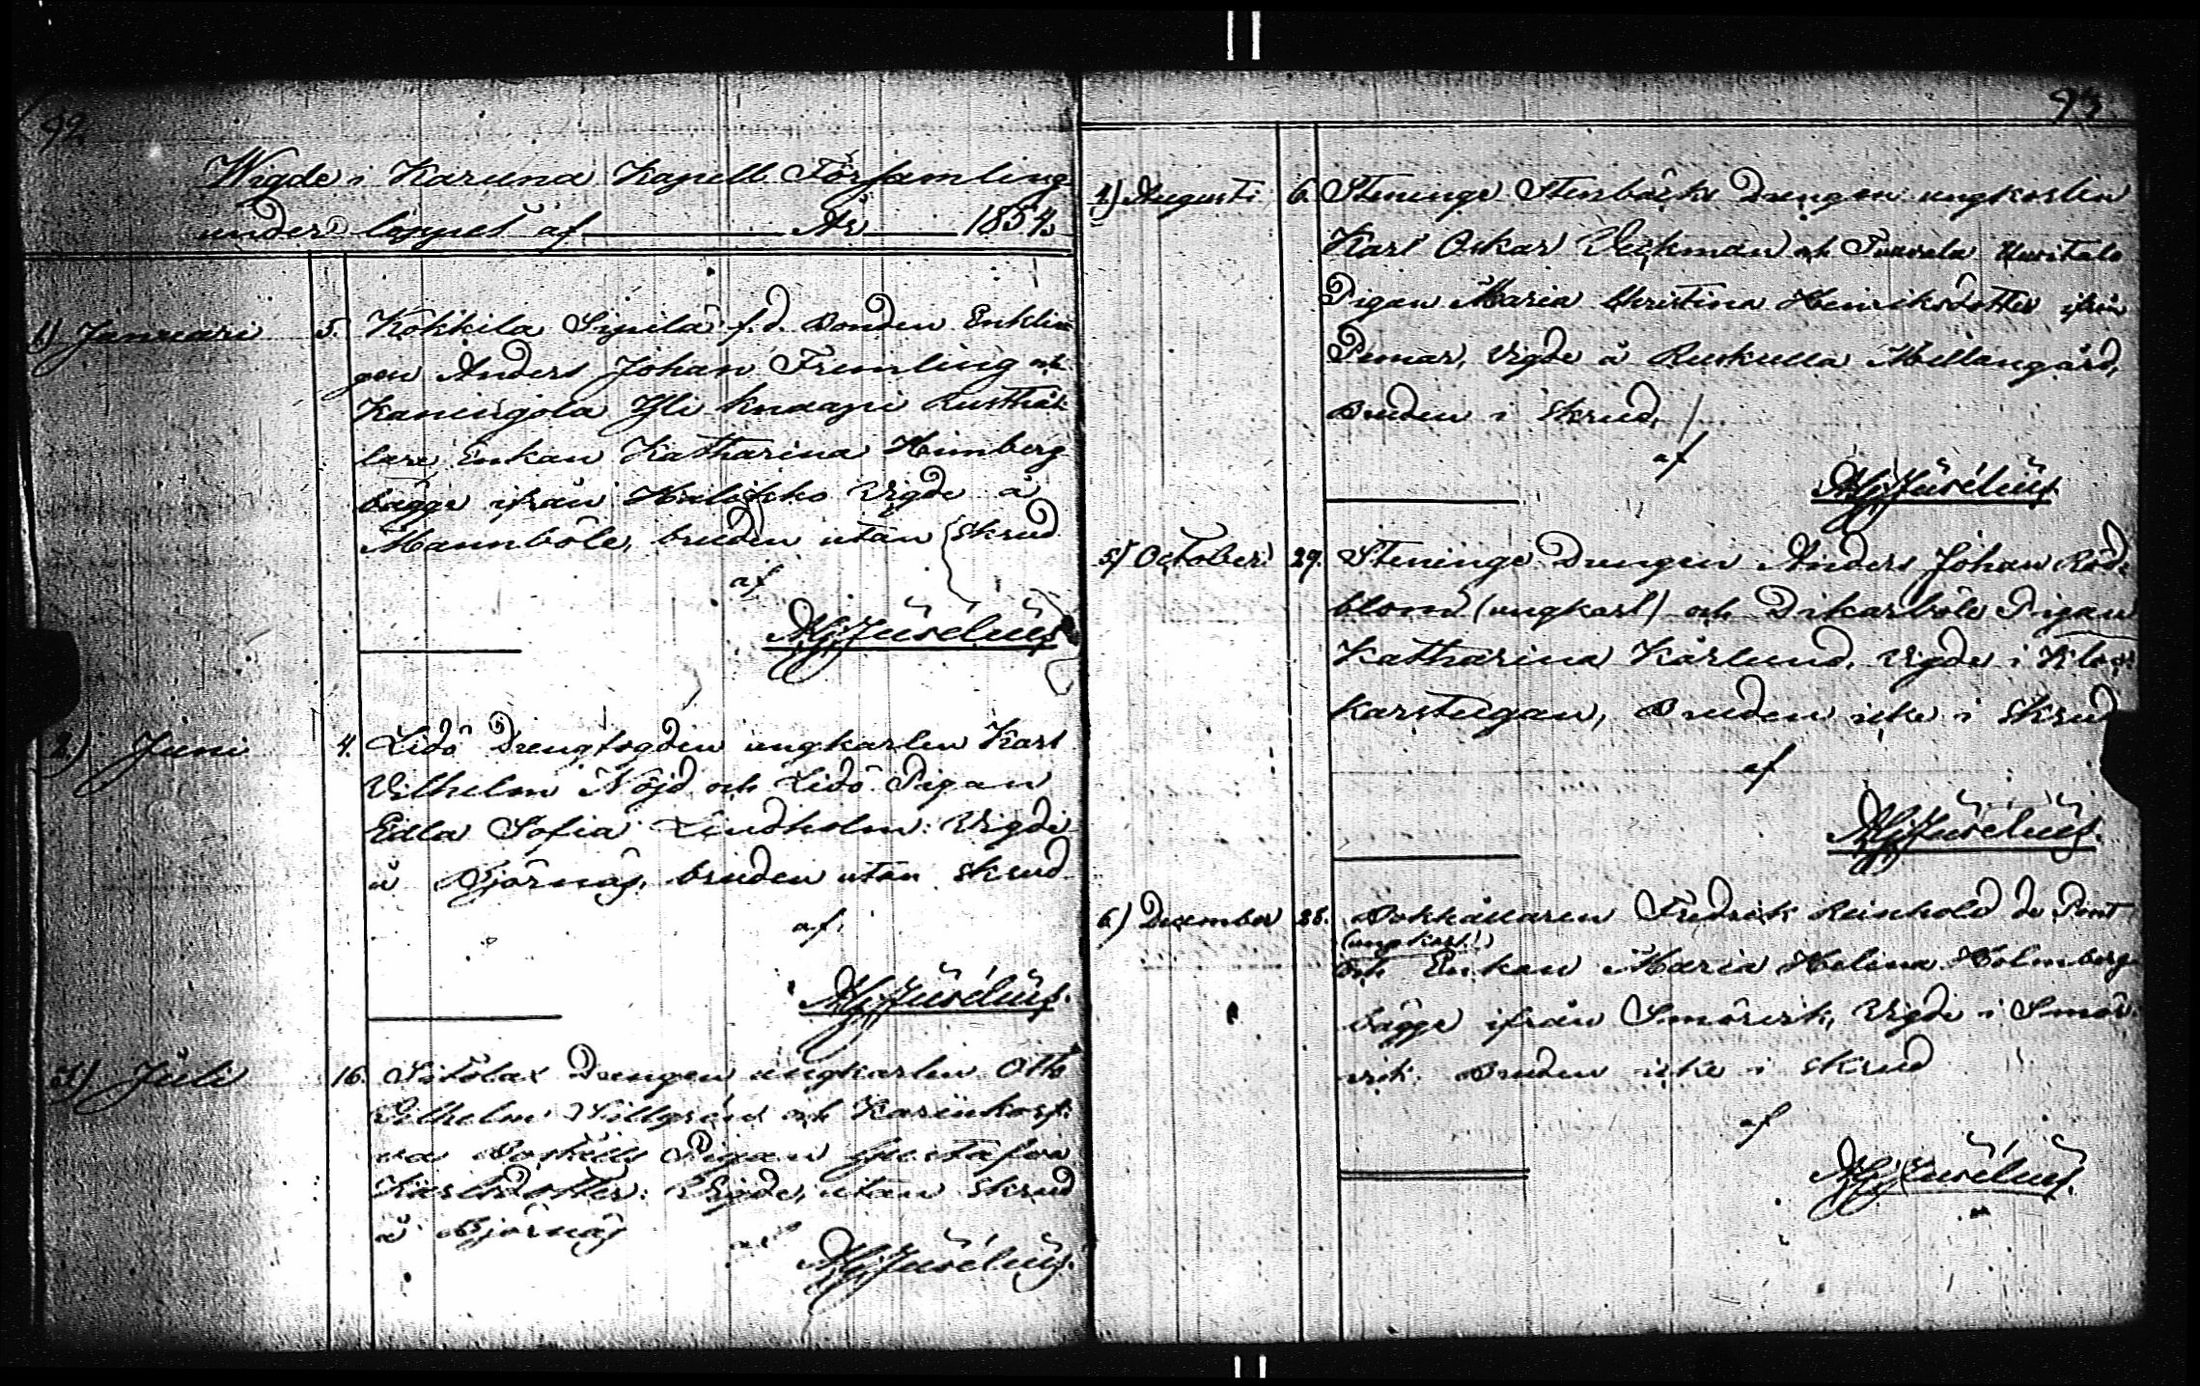 92.
Wigde i Karuna Kapell Församling
under loppet af År 1854.
1) Januari 5. Kökkila Sipilä f.d. Bonden Enklin
gen Anders Johan Fremling och
Kaningola Yli Knaapi Rusthål
lare Enkan Katharina Heimberg
bägge ifrån Halikko Vigde å
Mannböle, bruden utan skrud
af
Hj Jusélius
2.) Juni 4. Lidö Drengfogden ungkarlen Karl
Vilhelm Nöjd och Lidö Pigan
Edla Sofia Lindholm: Vigde
å Björnäs, bruden utan skrud
af
Hj Jusélius.
3) Juli 16. Drengen ungkarlen Otto
Vilhelm och
Pigan
Karlsdotter: Vigde, utan skrud
å Björnäs af
Hj Jusélius.
93.
4) Augusti 6. Steninge Stenbäcks Drengen ungkarlen
Karl Oskar Vickman och Uusitalo
Pigan Maria Christina Henriksdotter ifrån
Pemar, Vigde å Ruskulla Mellangård,
Bruden i skrud,
af
Hj Jusélius
5) October 29. Steninge Drengen Anders Johan Röd
blom (ungkarl) och Dikarböle Pigan
Katharina Karlund, Vigde i Kloc
karstugan, Bruden icke i skrud
af
Hj Jusélius.
6) December 28. Bokhållaren Fredrik Reinhold de Pont
(ungkarl)
och Enkan Maria Helena Holmberg
bägge ifrån Smörvik, Vigde i Smör
vik. Bruden icke i skrud
af
Hj Jusélius.